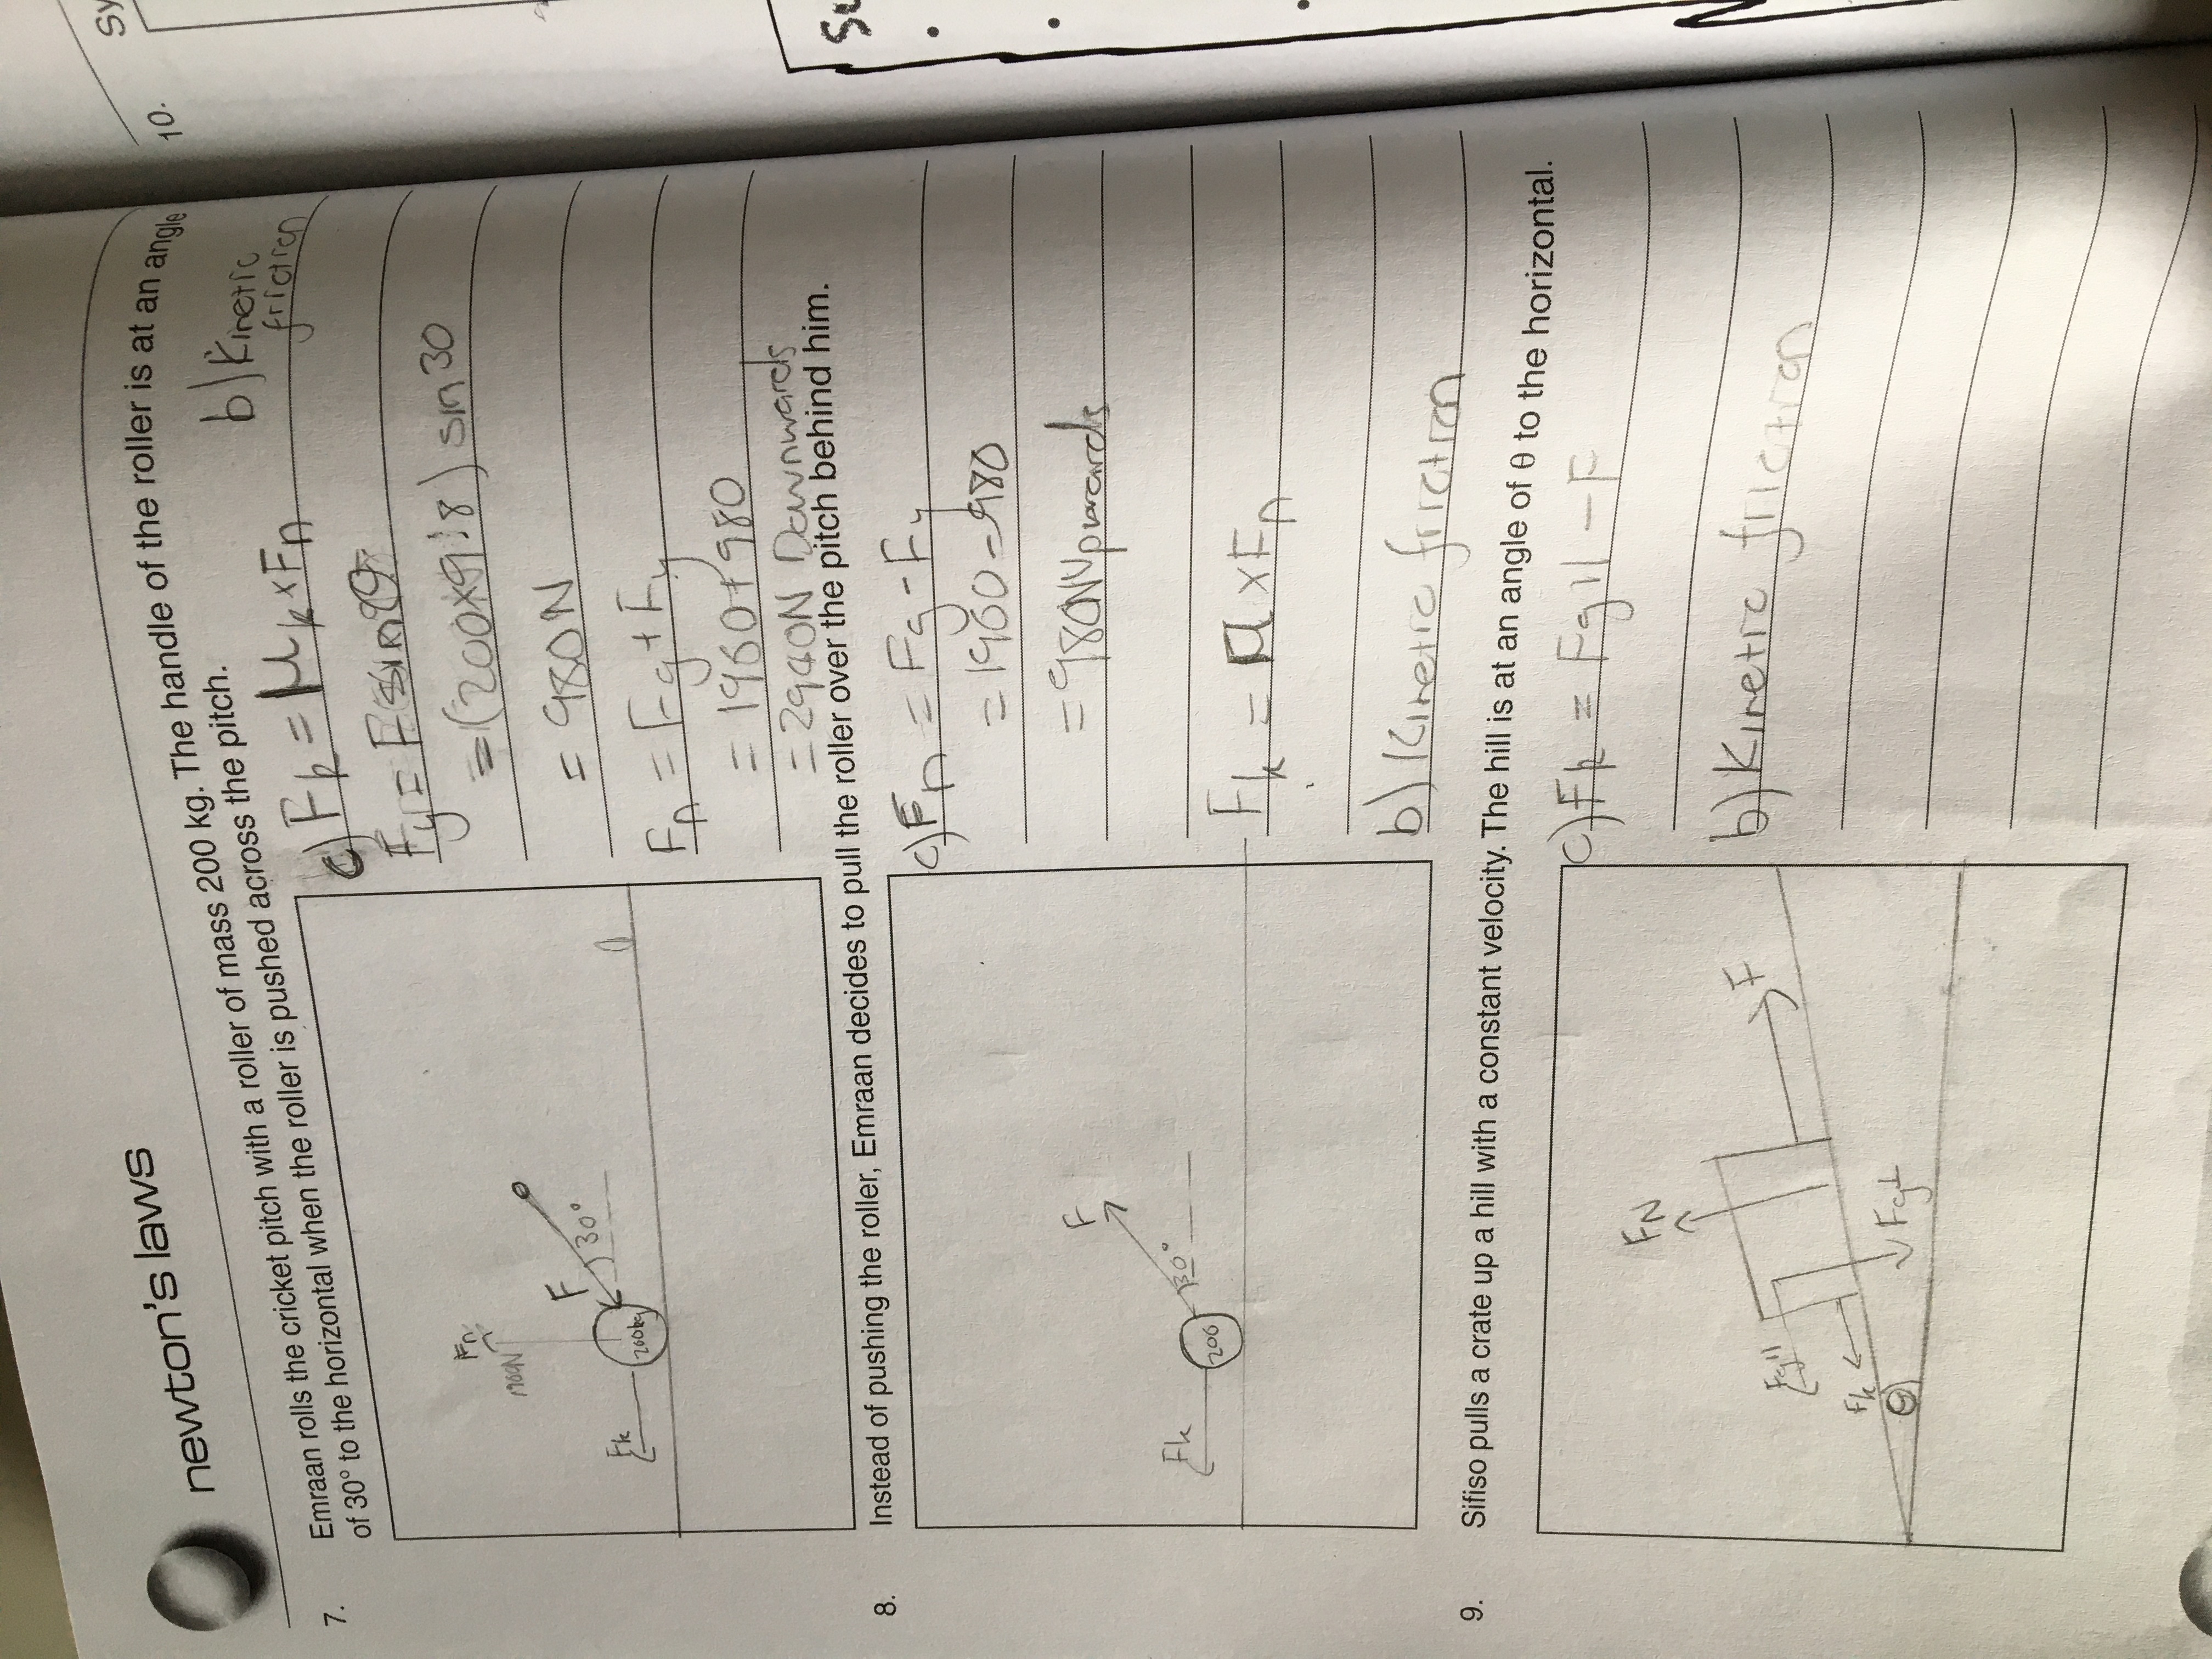 newton's laws
7. Emraan rolls the cricket pitch with a roller of mass 200 kg. The handle of the roller is at an angle
of 30° to the horizontal when the roller is pushed across the pitch.
b) Kinetic
friction
c) Fk = μk × Fn
Fy = F sin θ
= (200×9.8) sin 30
= 980N
Fn = Fg + Fy
= 1960 + 980
= 2940N Downwards
Fn
1960N
F
30°
Fk
200kg
8. Instead of pushing the roller, Emraan decides to pull the roller over the pitch behind him.
c) Fn = Fg - Fy
= 1960 - 980
= 980N Upwards
Fk = μ × Fn
b) Kinetic friction
F
Fk
30°
200
9. Sifiso pulls a crate up a hill with a constant velocity. The hill is at an angle of θ to the horizontal.
c) Fk = Fg|| - F
b) Kinetic friction
FN
F
Fg||
Fk
θ
Fg⊥
10.